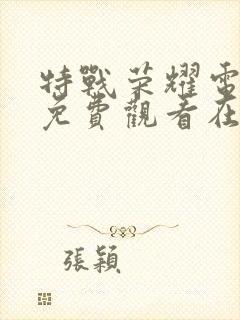 特戰荣耀電
免費觀看在
張穎